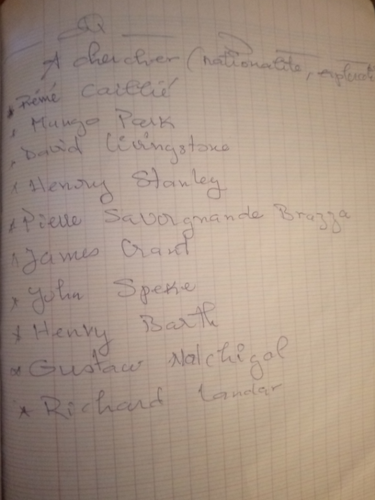 A chercher (nationalité, explorat
Réné Caillié
Mungo Park
David Livingstone
Henry Stanley
Pierre Savorgnande Brazza
James Grant
John Speke
Henry Barth
Gustaw Natchigal
Richard Landar